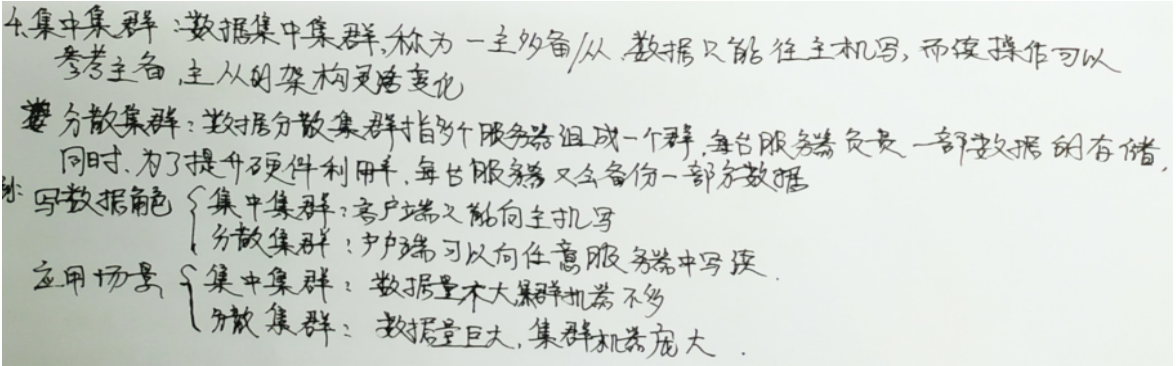 4.集中集群:数据集中集群,称为一主多备/从.数据只能往主机写,而读操作可以
参考主备,主从的架构灵活变化
分散集群:数据分散集群指多个服务器组成一个群,每台服务器负责一部数据的存储,
同时.为了提升硬件利用率,每台服务器又会备份一部分数据
写数据角色 { 集中集群:客户端只能向主机写
分散集群:户户端可以向任意服务器中写读.
应用场景 { 集中集群:数据量不大集群机器不多
分散集群:数据量巨大,集群机器庞大.